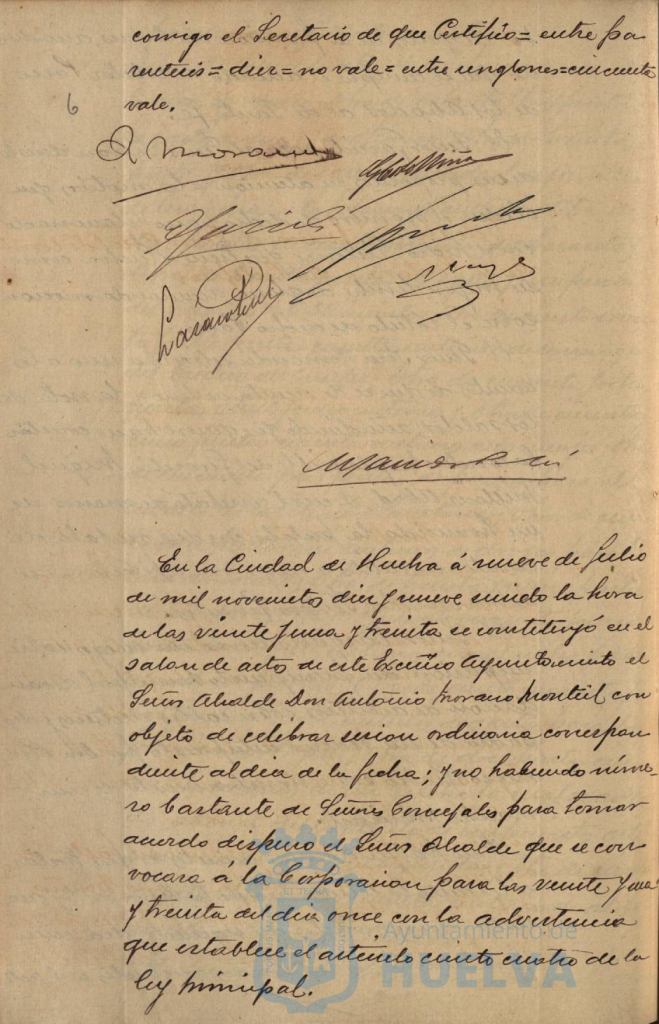 comigo el Secretario de que Certifico = entre pa
rentesis = diez = no vale = entre renglones = cincuenta
vale.
6
A Morano
En la Ciudad de Huelva á nueve de Julio
de mil novecientos diez y nueve siendo la hora
de las veinte y una y treinta se constituyó en el
salon de actos de este Excmo Ayuntamiento el
Señor Alcalde Don Antonio Morano Montiel con
objeto de celebrar sesion ordinaria correspon
diente al dia de la fecha; y no habiendo núme-
ro bastante de Señores Concejales para tomar
acuerdo dispuso el Señor Alcalde que se con
vocara á la Corporacion para las veinte y una
y treinta del dia once con la advertencia
que establece el articulo ciento cuatro de la
ley Municipal.
Ayuntamiento de
HUELVA